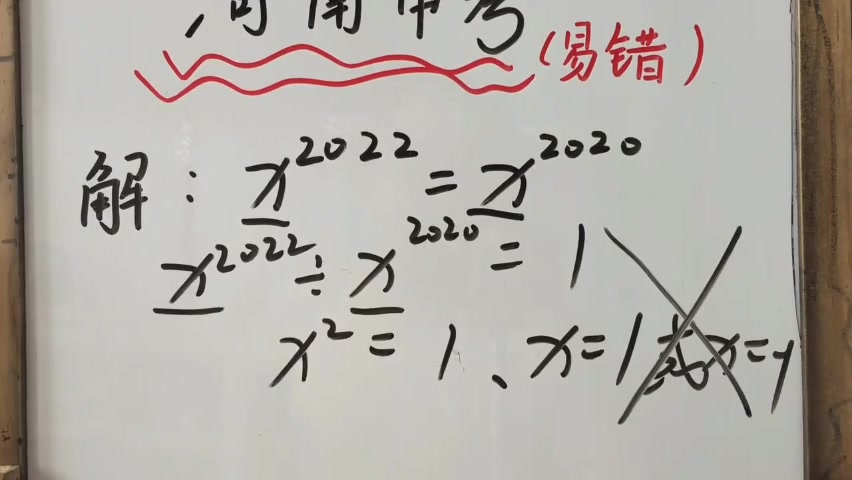 河南中考
(易错)
解：x²⁰²² = x²⁰²⁰
x²⁰²² ÷ x²⁰²⁰ = 1
x² = 1、x=1或x=-1